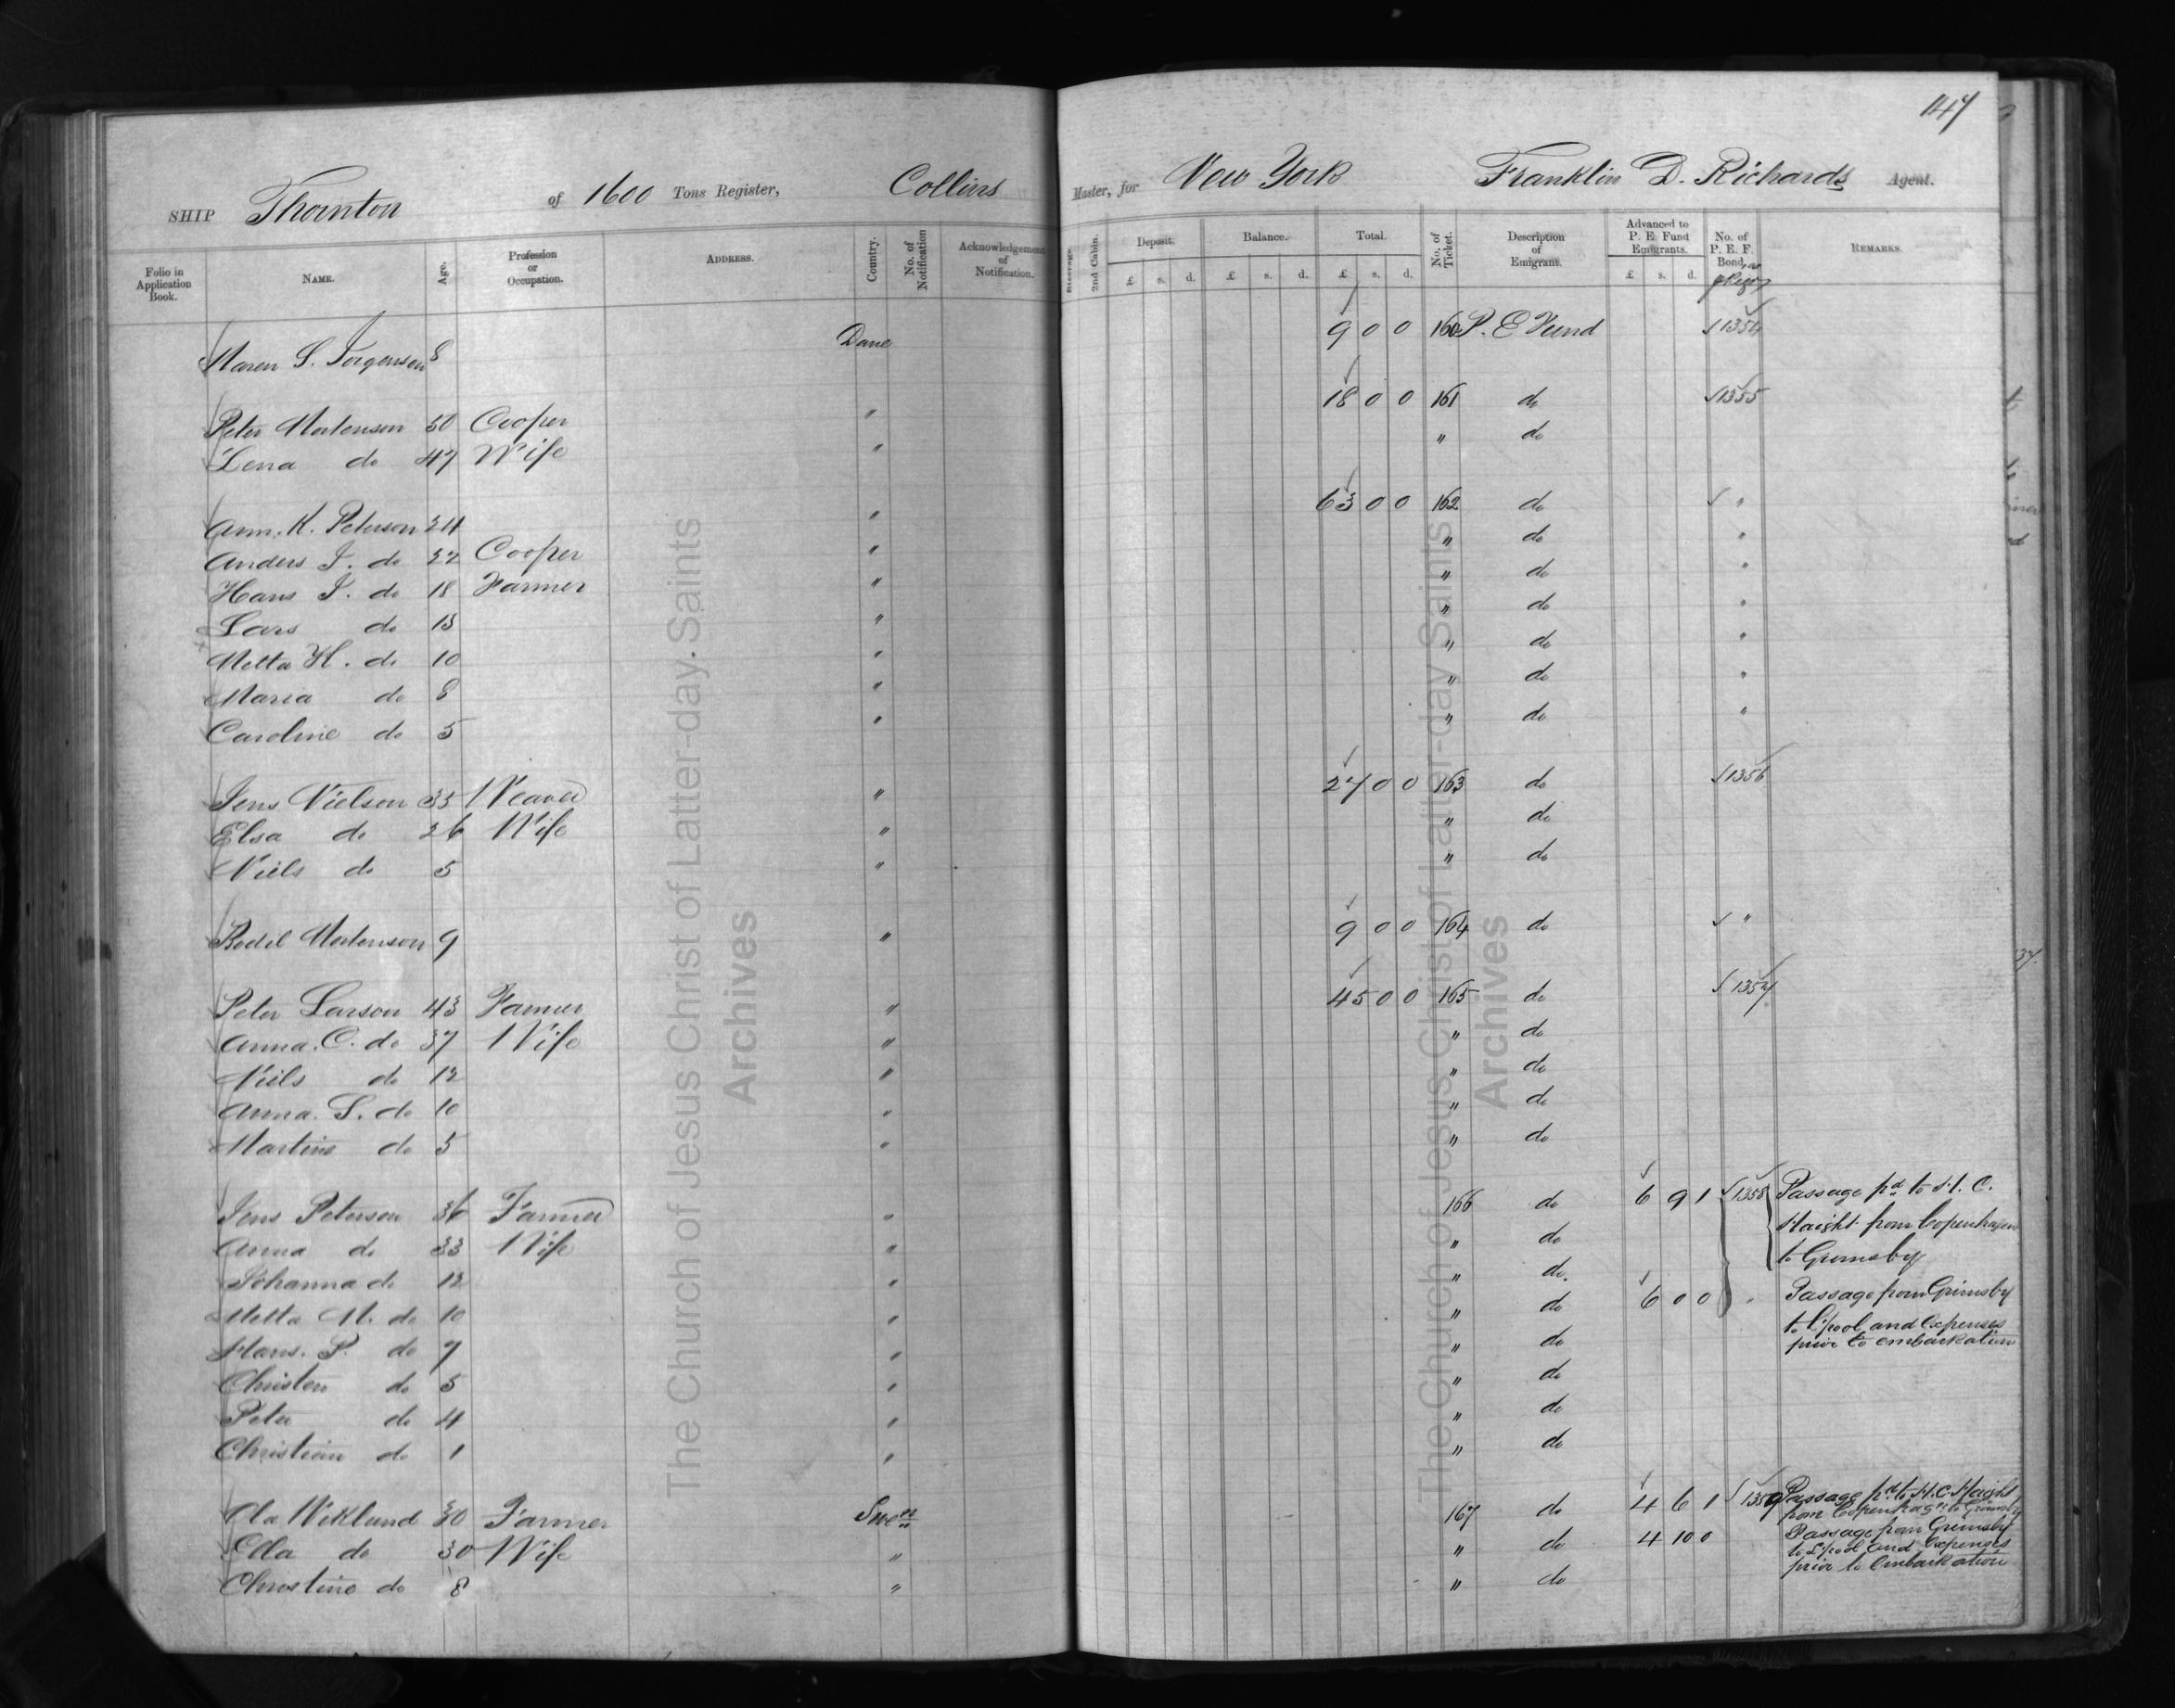 147
SHIP Thornton of 1600 Tons Register, Collins Master, for New York Franklin D. Richards Agent.
Folio in Application Book. NAME. Age. Profession or Occupation. ADDRESS. Country. No. of Notification Acknowledgement of Notification. Steerage. 2nd Cabin. Deposit. £ s. d. Balance. £ s. d. Total. £ s. d. No. of Ticket. Description of Emigrant. Advanced to P. E. Fund Emigrants. £ s. d. No. of P. E. F. Bond, REMARKS.
Maren S. Jorgenson 8 Dane 9 0 0 160 P. E Fund 1354
Peter Mortenson 50 Cooper " 18 0 0 161 do 1355
Lena do 47 Wife " " do
Ann. K. Peterson 24 " 63 0 0 162 do "
Anders J. do 22 Cooper " " do "
Hans J. do 18 Farmer " " do "
Lars do 13 " " do "
Metta H. do 10 " " do "
Maria do 8 " " do "
Caroline do 5 " " do "
Jens Nielson 35 Weaver " 27 0 0 163 do 1356
Elsa do 26 Wife " " do
Niels do 5 " " do
Bodil Mortenson 9 " 9 0 0 164 do "
Peter Larson 43 Farmer " 45 0 0 165 do 1357
Anna. C. do 37 Wife " " do
Niels do 12 " " do
Anna. S. do 10 " " do
Martine do 5 " " do
Jens Peterson 36 Farmer " 166 do 6 9 1 1358 Passage pd to H. C.
Haight from Copenhagen
to Grimsby
Anna do 33 Wife " " do
Johanna do 12 " " do.
Metta M. do 10 " " do 6 0 0 " Passage from Grimsby
to L'pool and Expenses
prior to embarkation
Hans. P. do 7 " " do
Christen do 5 " " do
Peter do 4 " " do
Christian do 1 " " do
Ola Wiklund 30 Farmer Swen 167 do 4 6 1 1359 Passage pd to H. C. Haight
from Copenhagn to Grimsby
Ella do 30 Wife " " do 4 10 0 Passage from Grimsby
to L'pool and Expenses
prior to Embarkation
Christine do 8 " " do
The Church of Jesus Christ of Latter-day Saints
Archives
The Church of Jesus Christ of Latter-day Saints
Archives